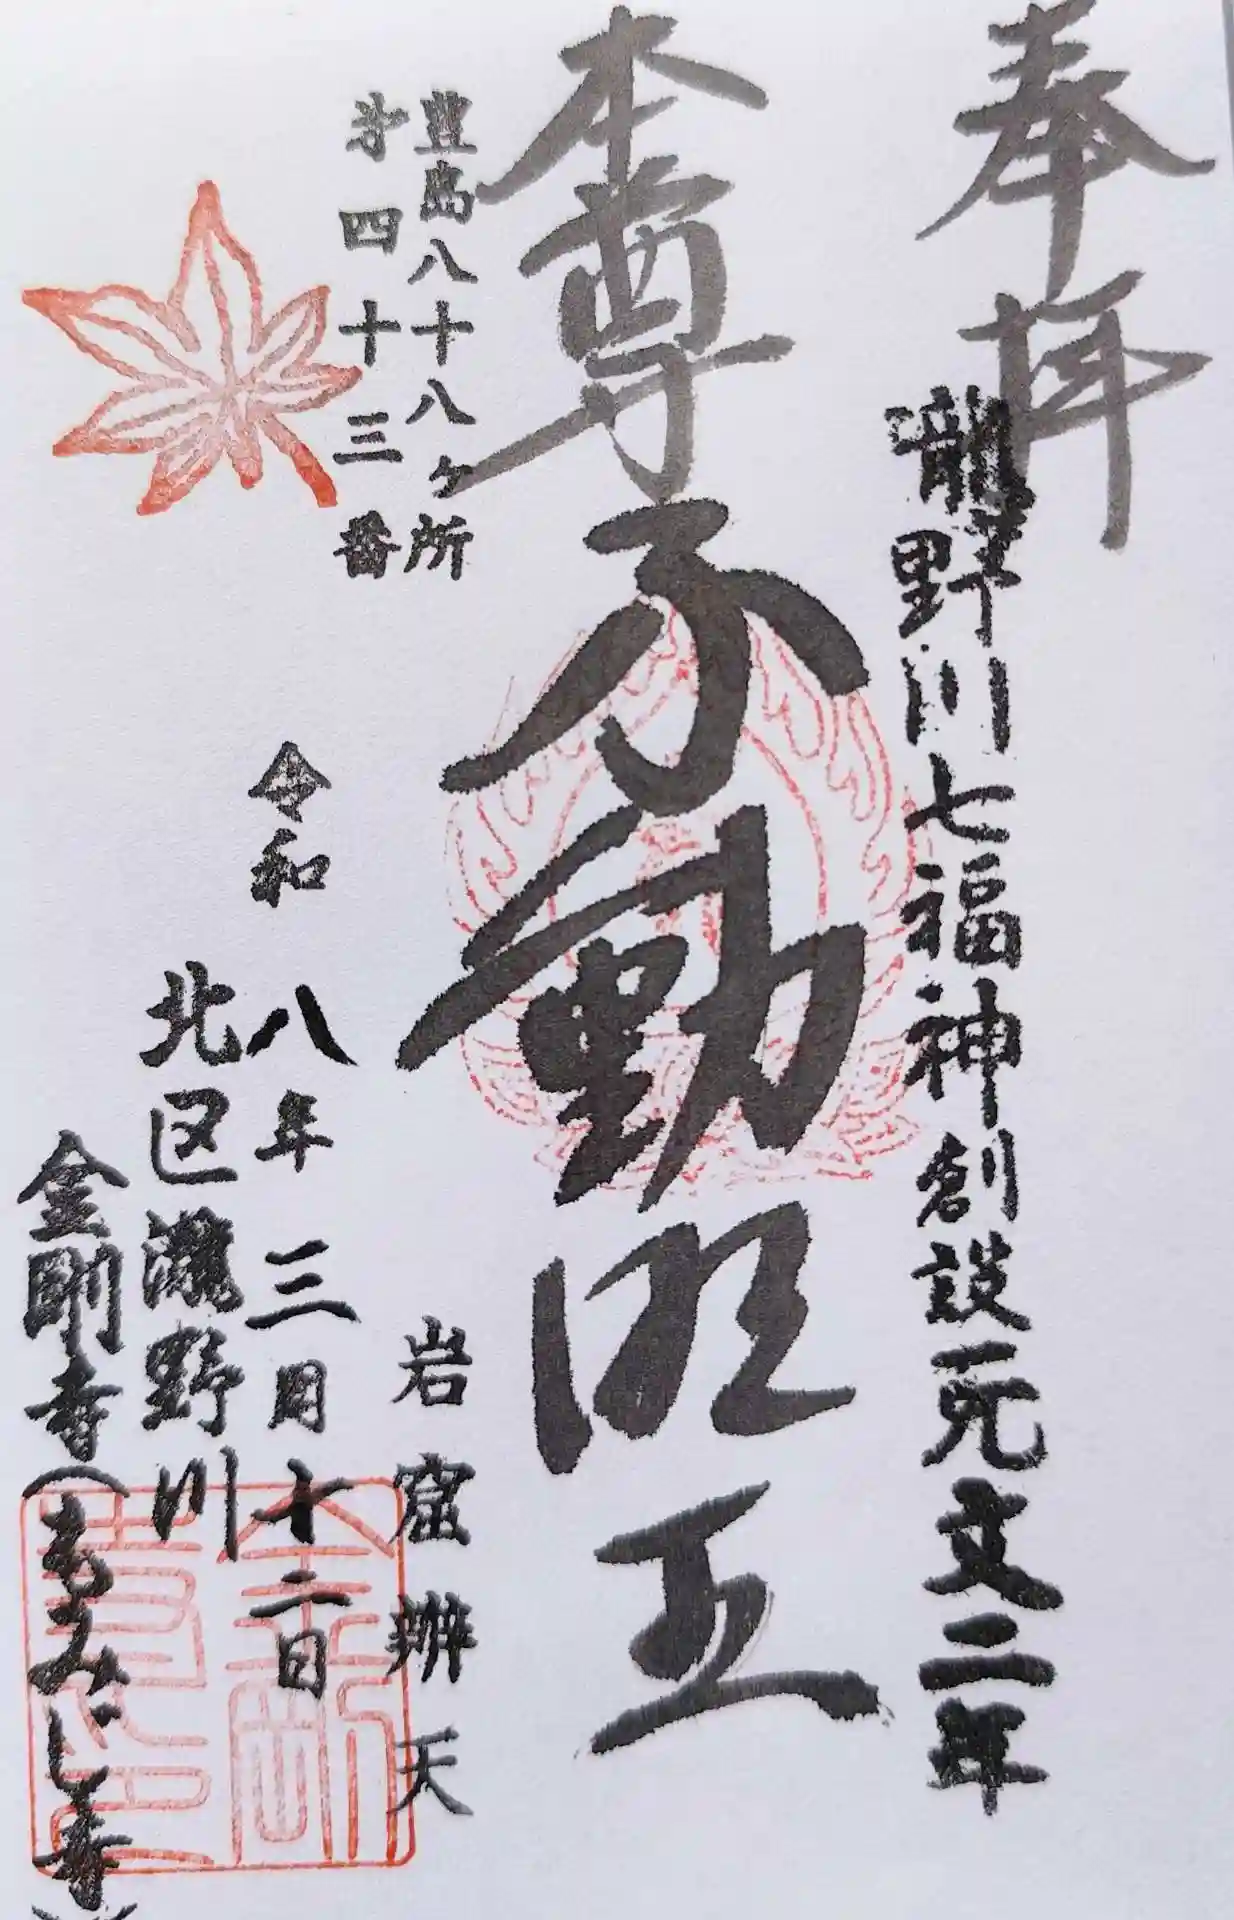 奉拝
瀧野川七福神創設元文二年
本尊不動明王
豊島八十八ヶ所
第四十三番
岩窟辨天
令和八年三月十二日
北区瀧野川
金剛寺(もみじ寺)
金剛寺印